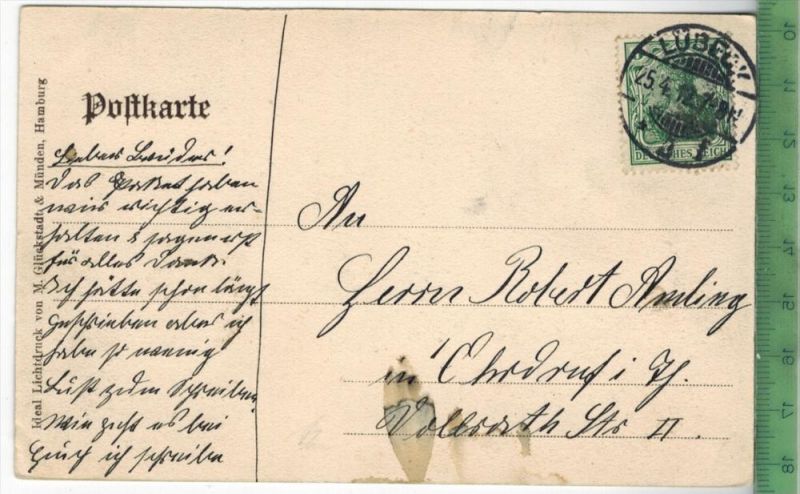 Postkarte
LÜBECK
25.4.12
DEUTSCHES REICH
Ideal Lichtdruck von M. Glückstadt & Münden, Hamburg
Lieber Bruder!
Das Packet haben
wir richtig er-
halten & sagen erst
für alles Dank.
Ich hatte schon längst
geschrieben aber ich
habe so wenig
Lust zum Schreiben.
Wie geht es bei
Euch ich schreibe
An
Herrn Robert Amling
in Ohrdruf i Th.
Str II
10
11
12
13
14
15
16
17
18